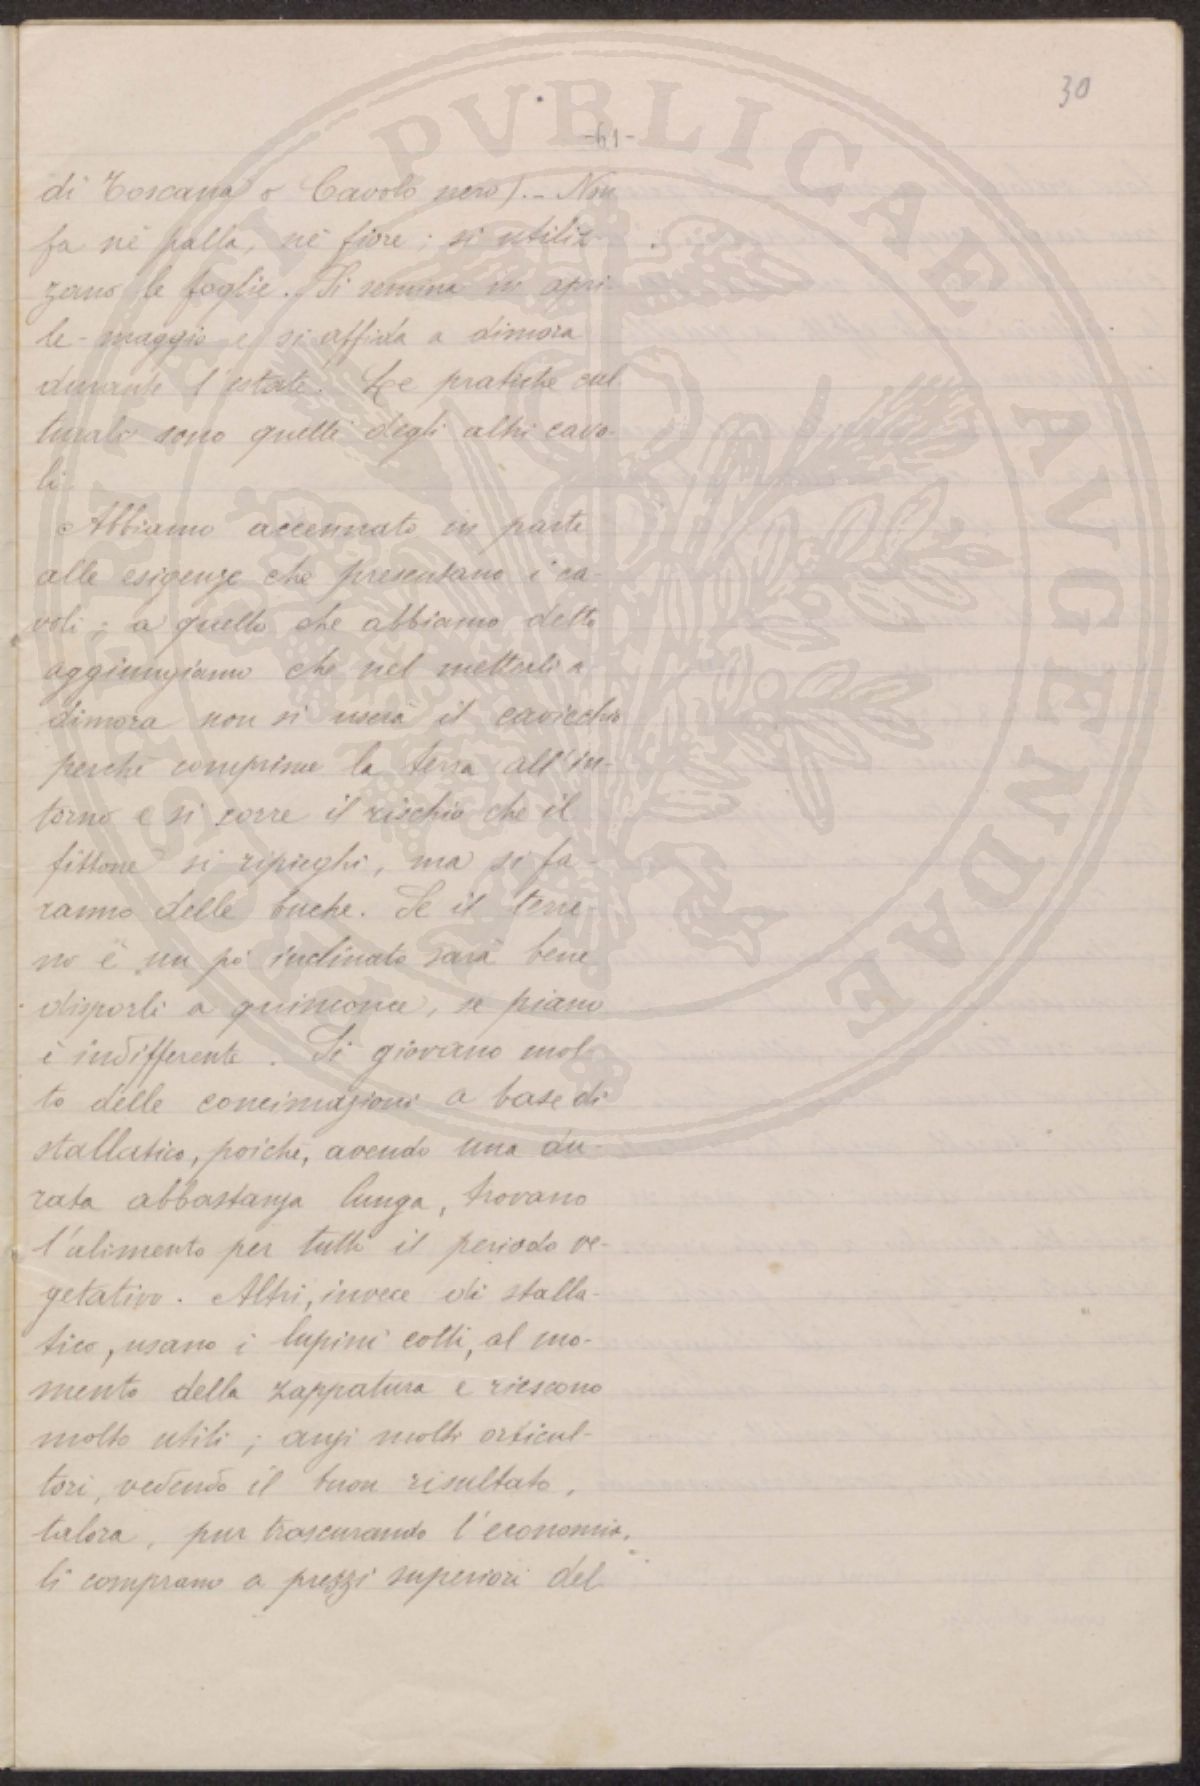 30
-61-
di Toscana o Cavolo nero). - Non
fa nè palla, nè fiore; si utiliz-
zano le foglie. Si semina in apri-
le-maggio e si affida a dimora
durante l'estate. Le pratiche cul
turali sono quelle degli altri cavo-
li.
Abbiamo accennato in parte
alle esigenze che presentano i ca-
voli; a quello che abbiamo detto
aggiungiamo che nel metterli a
dimora non si userà il cavicchio
perchè comprime la terra all'in-
torno e si corre il rischio che il
fittone si ripieghi, ma si fa-
ranno delle buche. Se il terre-
no è un pò inclinato sarà bene
disporli a quinconce, se piano
è indifferente. Si giovano mol-
to delle concimazioni a base di
stallatico, poichè, avendo una du-
rata abbastanza lunga, trovano
l'alimento per tutto il periodo ve-
getativo. Altri, invece di stalla-
tico, usano i lupini cotti, al mo-
mento della zappatura e riescono
molto utili; anzi molti orticul-
tori, vedendo il buon risultato,
talora, pur trascurando l'economia,
li comprano a prezzi superiori del
PVBLICAE AVGENDAE